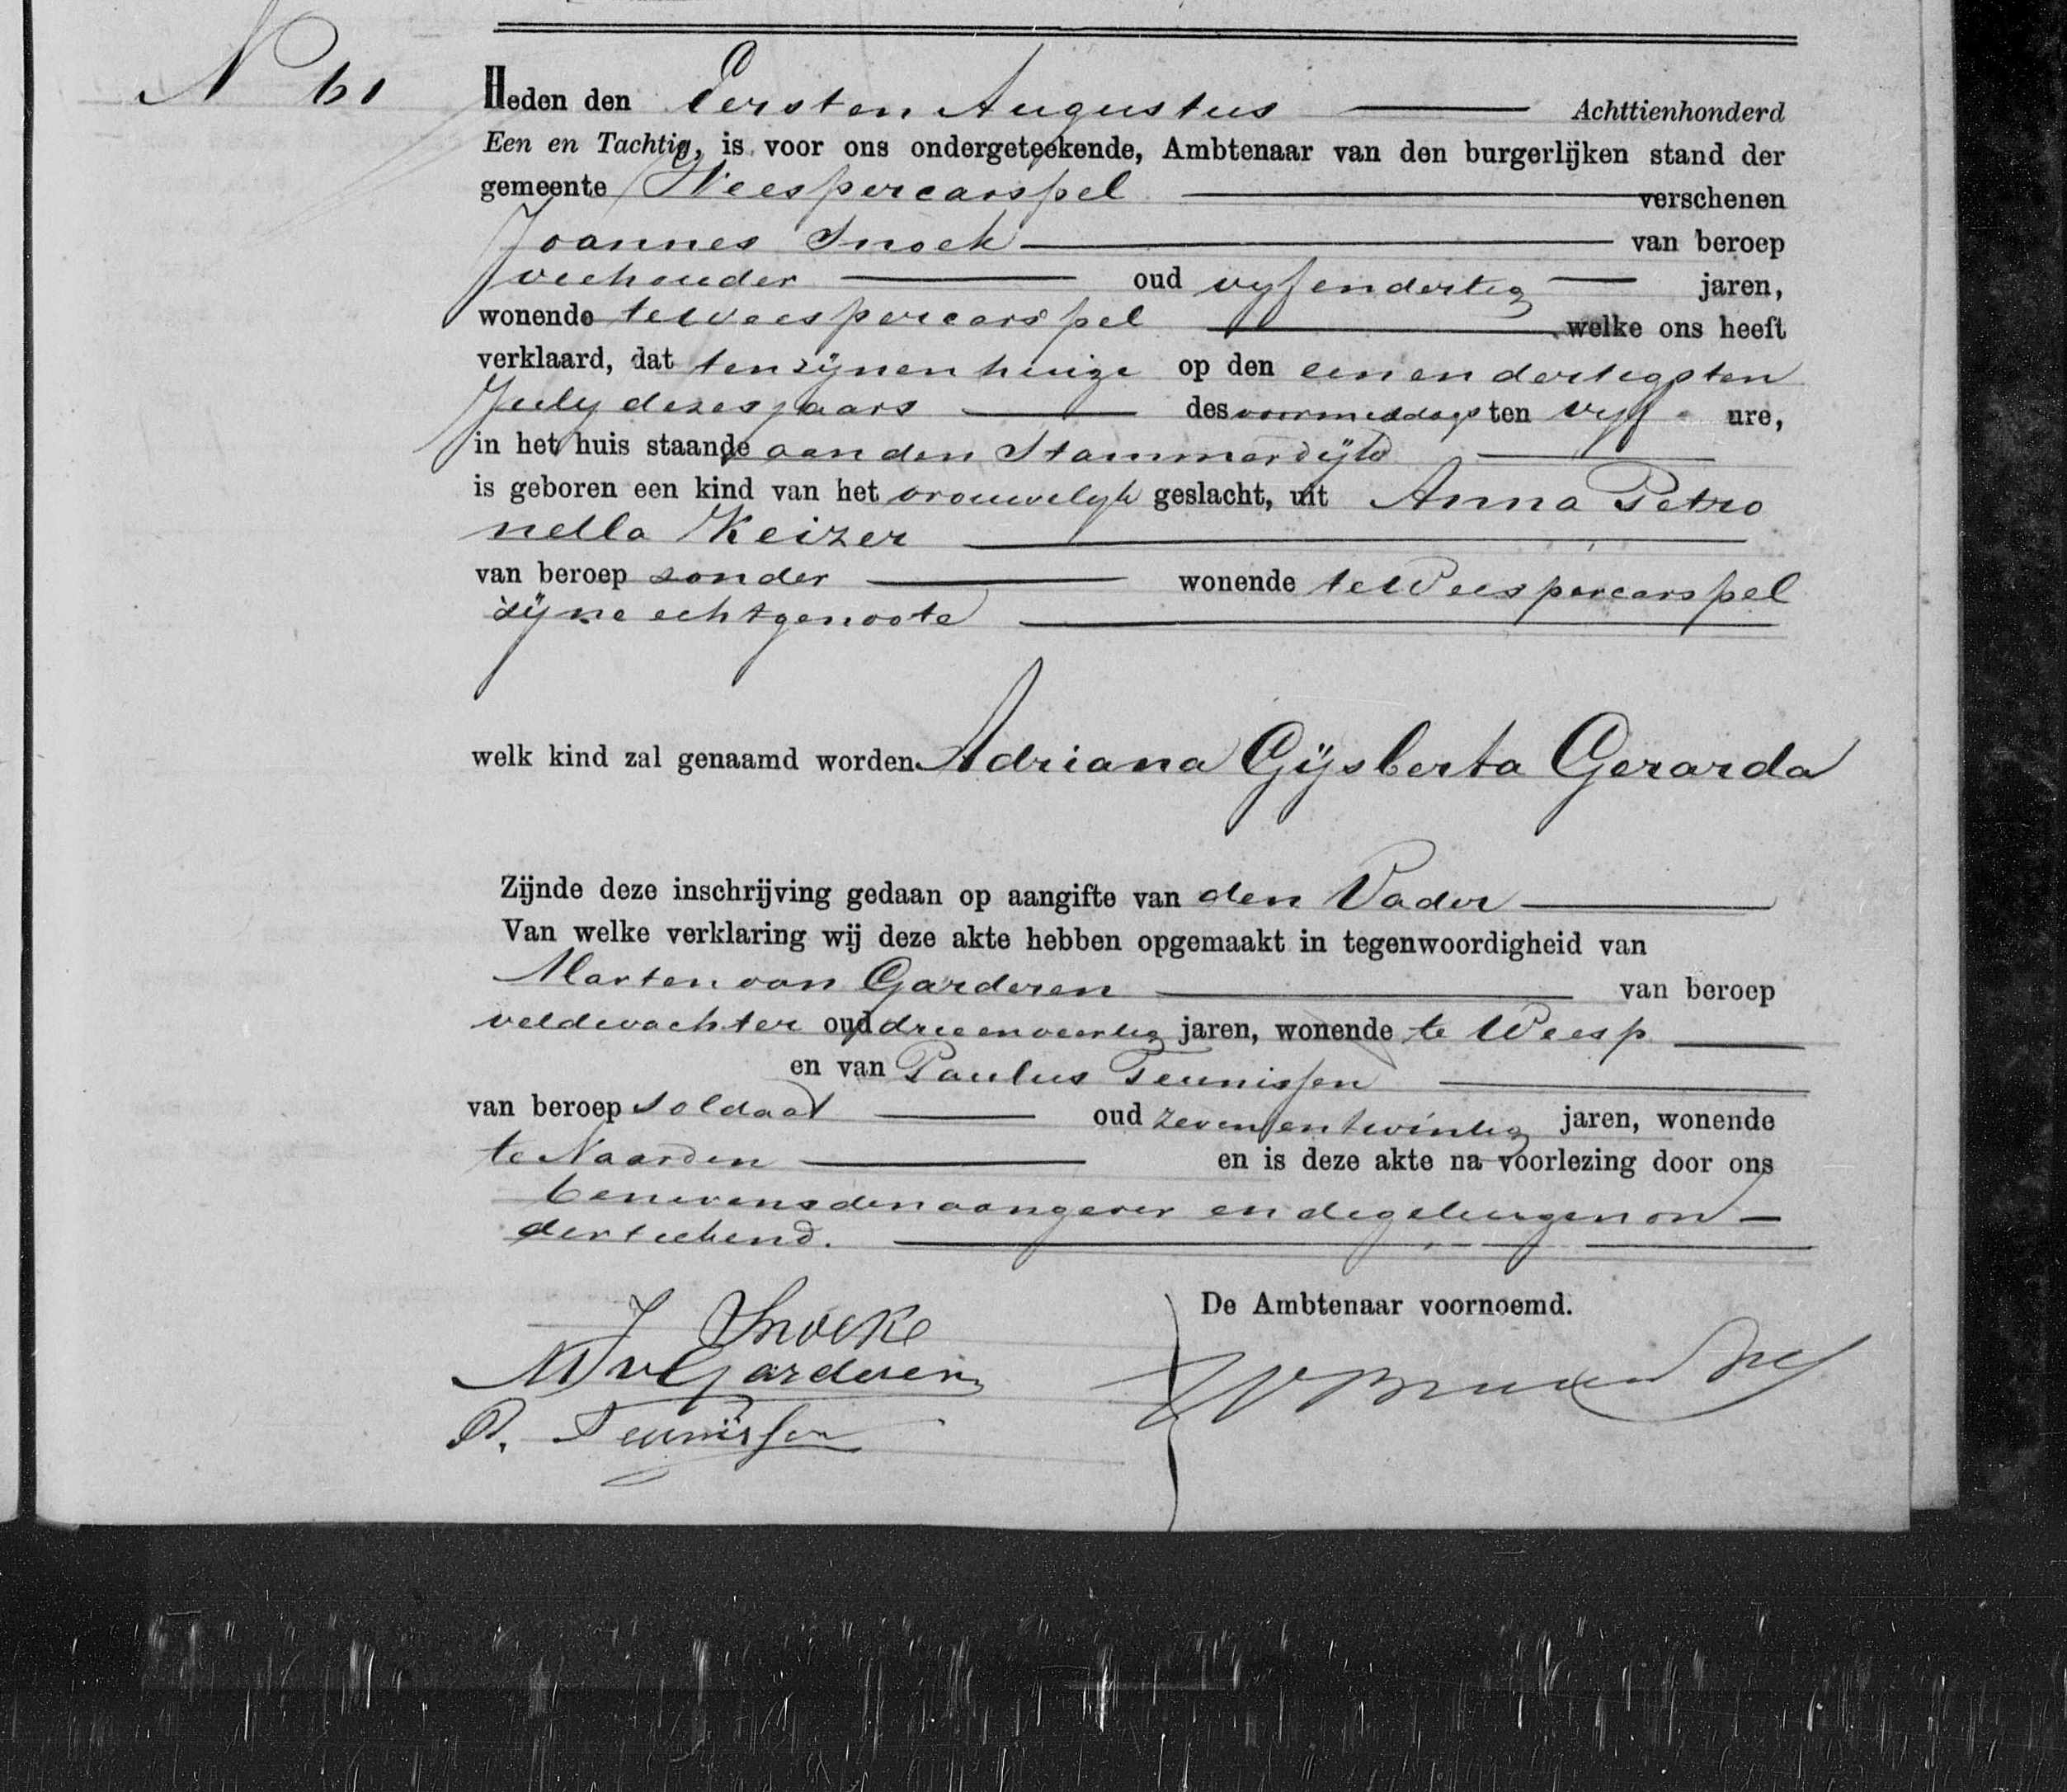 N 61
Heden den Eersten Augustus Achttienhonderd
Een en Tachtig, is voor ons ondergeteekende, Ambtenaar van den burgerlijken stand der
gemeente Weespercarspel verschenen
Joannes Snoek van beroep
veehouder oud vyfendertig jaren,
wonende te Weespercarspel welke ons heeft
verklaard, dat ten zijnen huize op den eenendertigsten
July dezes jaars des voormiddags ten vyf ure,
in het huis staande aan den Stammerdijk
is geboren een kind van het vrouwelyk geslacht, uit Anna Petro
nella Keizer
van beroep zonder wonende te Weespercarspel
zijne echtgenoote
welk kind zal genaamd worden Adriana Gijsberta Gerarda
Zijnde deze inschrijving gedaan op aangifte van den Vader
Van welke verklaring wij deze akte hebben opgemaakt in tegenwoordigheid van
Marten van Garderen van beroep
veldwachter oud drieenveertig jaren, wonende te Weesp
en van Paulus Teunissen
van beroep soldaat oud zevenentwintig jaren, wonende
te Naarden en is deze akte na voorlezing door ons
benevens den aangever en de getuigen on-
derteekend.
De Ambtenaar voornoemd.
J Snoek
M v Garderen
P. Teunissen